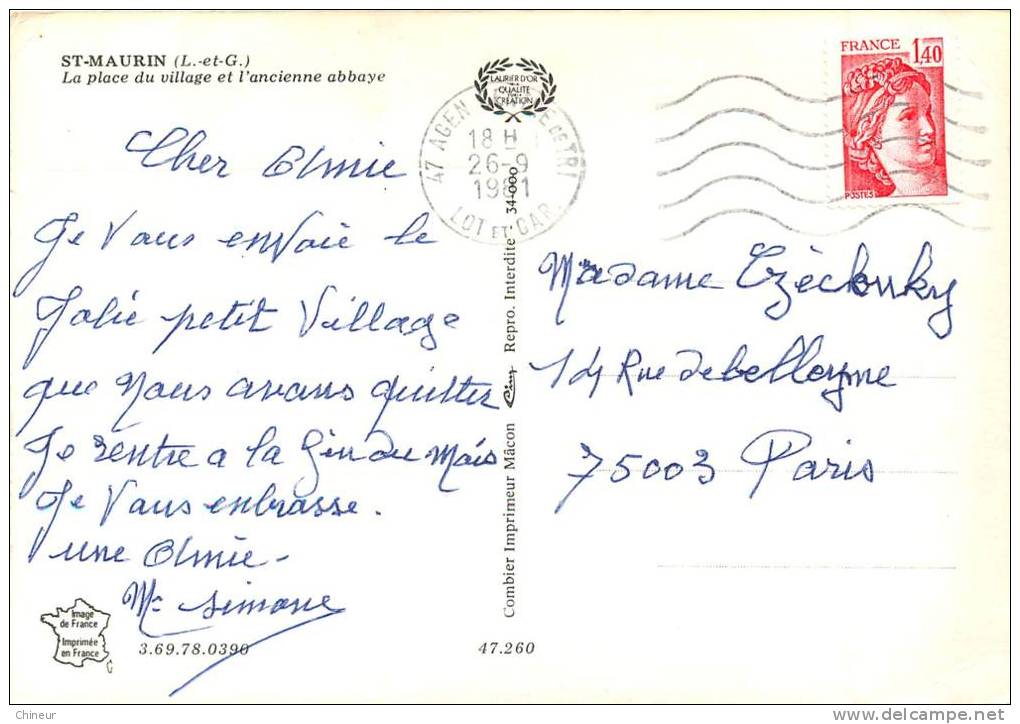 ST-MAURIN (L.-et-G.)
La place du village et l'ancienne abbaye
LAURIER D'OR
QUALITÉ
CRÉATION
FRANCE 1,40
POSTES
47 AGEN E DE TRI
18 H
26-9
1981
LOT ET GAR.
Cher Amie
Je vous envoie le
Jolie petit Village
que nous avons quitter
Je rentre a la fin du Mois
Je vous enbrasse.
une Amie-
Me Simone
Madame
14 Rue de belleyme
75003 Paris
Combier Imprimeur Mâcon Repro. Interdite 34-000
Image
de France
Imprimée
en France
3.69.78.0390
47.260
Chineur
http://www.delcampe.net